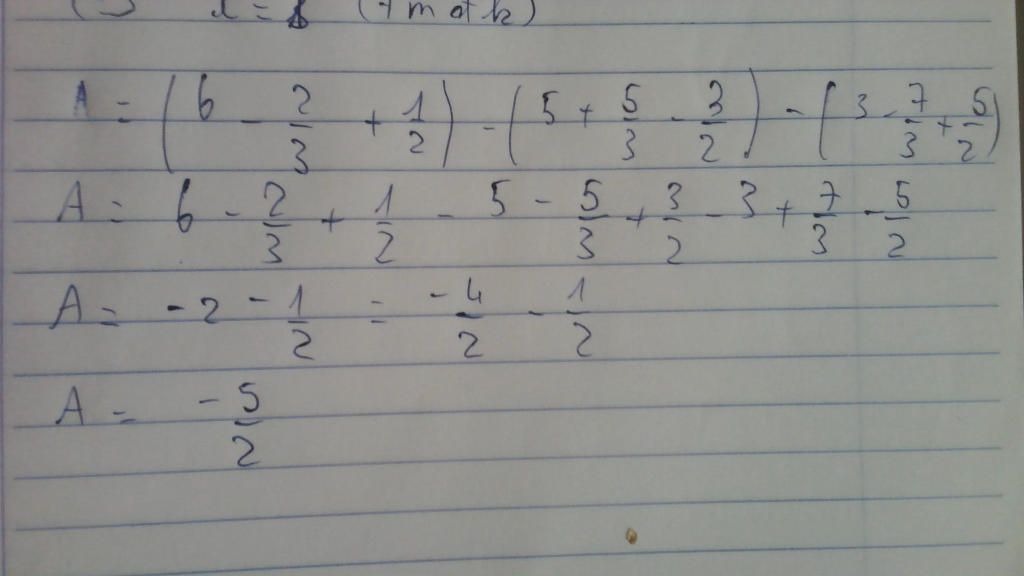 (t/m đk)
A = (6 - 2/3 + 1/2) - (5 + 5/3 - 3/2) - (3 - 7/3 + 5/2)
A = 6 - 2/3 + 1/2 - 5 - 5/3 + 3/2 - 3 + 7/3 - 5/2
A = -2 - 1/2 = -4/2 - 1/2
A = -5/2